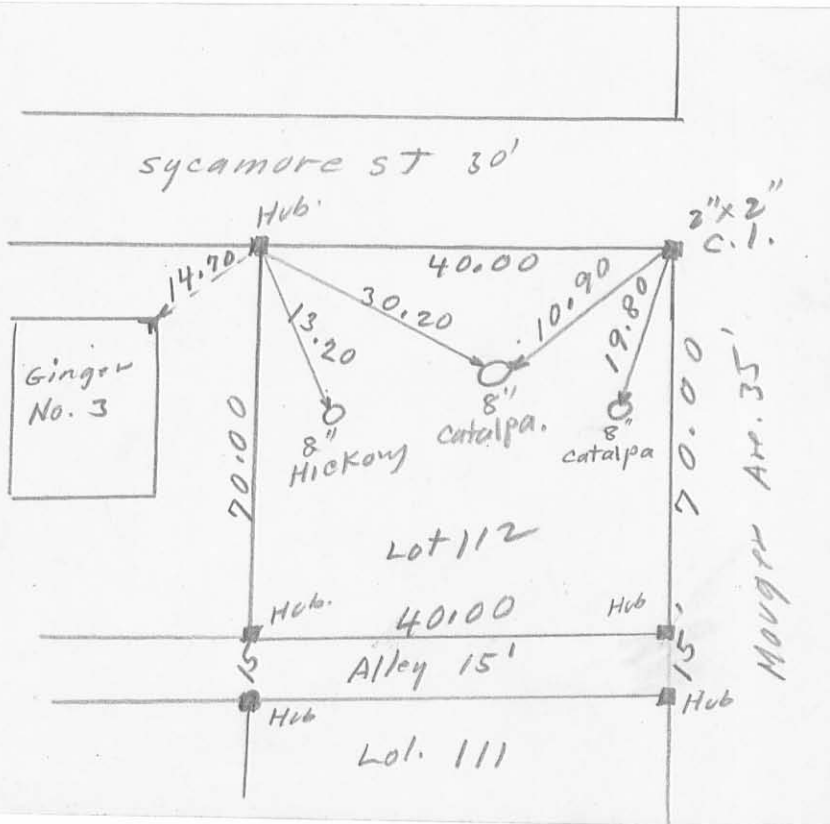 sycamore st 30'
Hub.
2" x 2"
C.I.
14.70
40.00
30.20
10.90
13.20
19.80
Ginger
No. 3
8"
Hickory
8"
Catalpa.
8"
Catalpa
70.00
70.00
Lot 112
Hub.
40.00
Hub
15'
Alley 15'
15'
Hub
Hub
Lot. 111
Ave. 35'